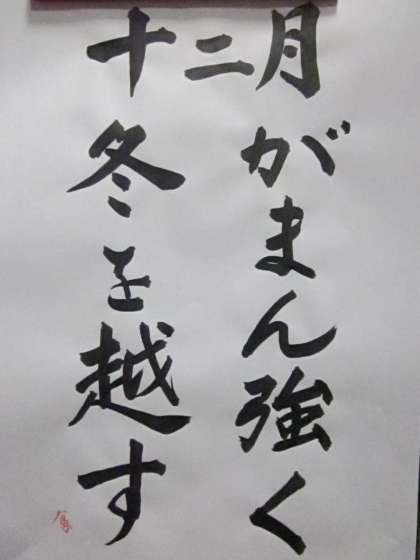 十二月
がまん強く
冬を越す